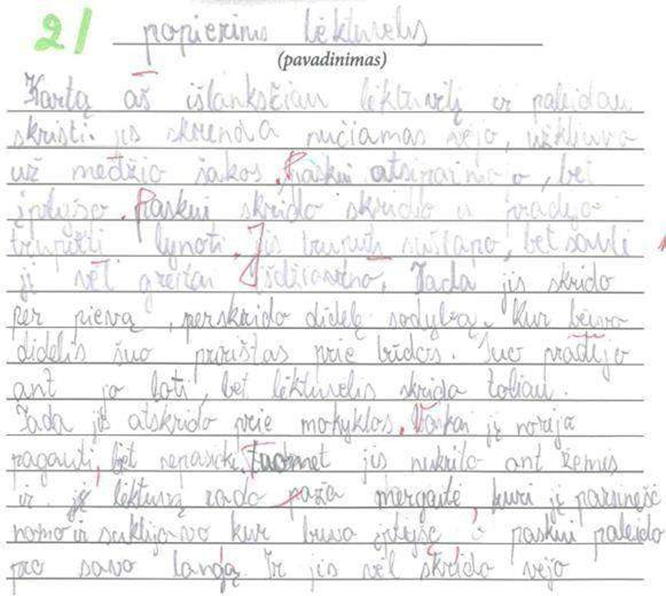 21 popierinis lėktuvėlis
(pavadinimas)
Kartą aš išlanksčiau lėktuvėlį ir paleidau
skristi. jis skrenda pučiamas vėjo, užkliuvo
už medžio šakos. Paskui atsirai o, bet
įplyšo. Paskui skrido skrido ir pradėjo
truputi lynoti. Jis truputi sušlapo, bet saulė
jį vėl greitai išdžiovino. Tada jis skrido
per pievą, perskrido didelę sodybą. Kur buvo
didelis šuo pririštas prie būdos. Šuo pradėjo
ant jo loti, bet lėktuvėlis skrido toliau.
Tada jis atskrido prie mokyklos. Vaikai jį norėjo
pagauti, bet nepasiekė. Tuomet jis nukrito ant žemės
ir lėktuvą rado maža mergaitė, kuri jį parsinešė
namo ir suklijavo kur buvo įplyšę, o paskui paleido
pro savo langą. Ir jis vėl skrido vėjo